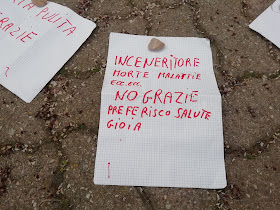 ARIA PULITA
GRAZIE
?
INCENERITORE
MORTE MALATTIE
ecc. ecc.
NO GRAZIE
PREFERISCO SALUTE
GIOIA